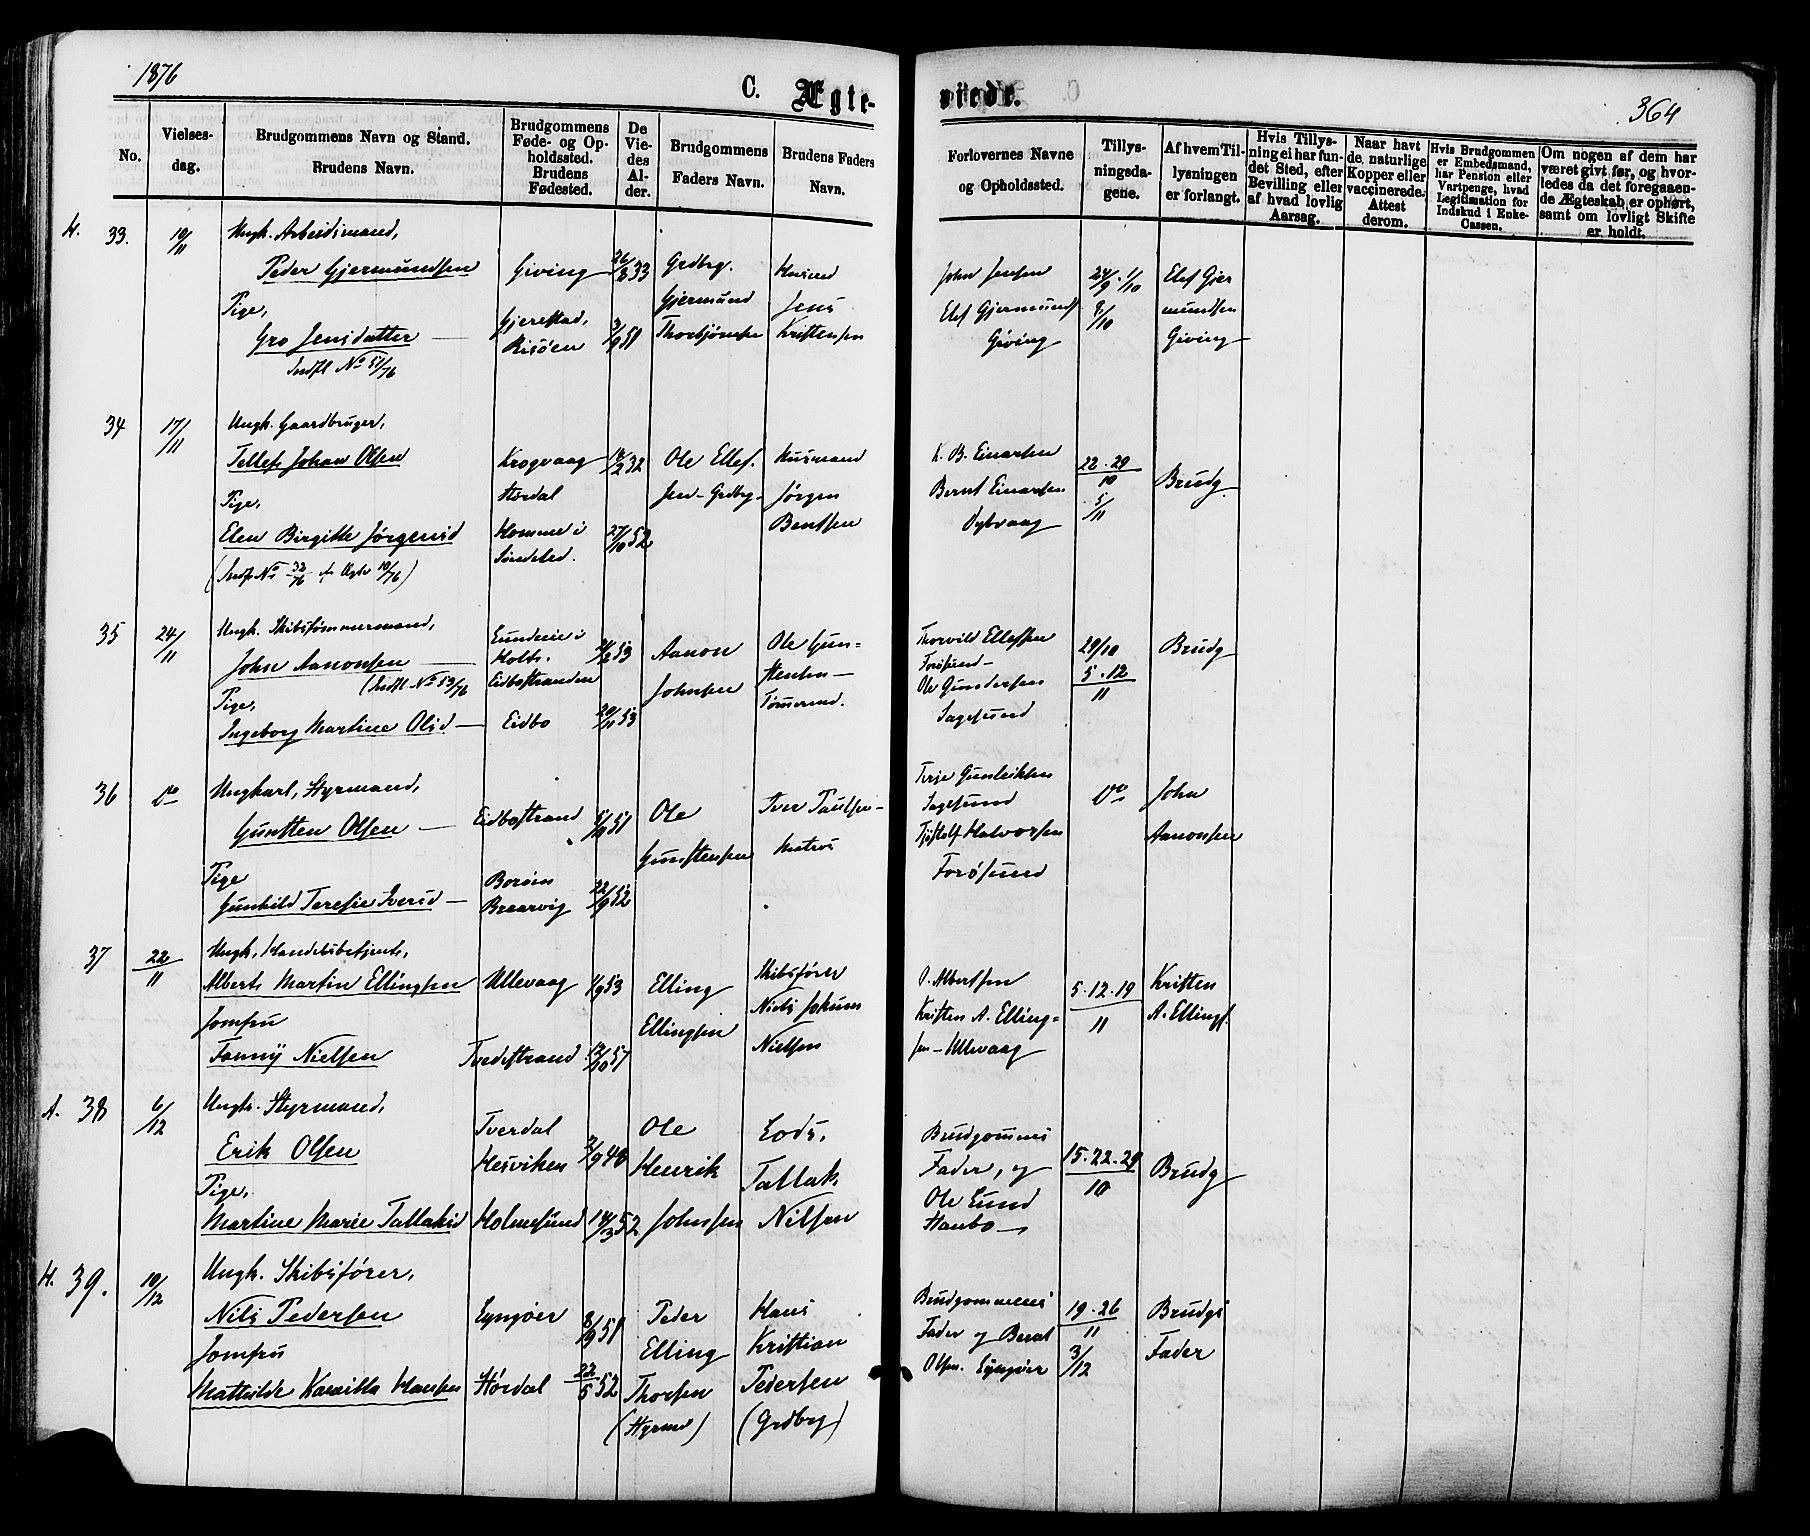 1876
C. Ægte-
viede.
364
No.
Vielses-
dag.
Brudgommens Navn og Stand.
Brudens Navn.
Brudgommens
Føde- og Op-
holdssted.
Brudens
Fødested.
De
Vie-
des
Al-
der.
Brudgommens
Faders Navn.
Brudens Faders
Navn.
Forlovernes Navne
og Opholdssted.
Tillys-
ningsda-
gene.
Af hvem Til-
lysningen
er forlangt.
Hvis Tillys-
ning ei har fun-
det Sted, efter
Bevilling eller
af hvad lovlig
Aarsag.
Naar havt
de naturlige
Kopper eller
vaccinerede.
Attest
derom.
Hvis Brudgommen
er Embedsmand,
har Pension eller
Vartpenge, hvad
Legitimation for
Indskud i Enke-
Cassen.
Om nogen af dem har
været givt før, og hvor-
ledes da det foregaaen-
de Ægteskab er ophørt,
samt om lovligt Skifte
er holdt.
H. 33. 10/11
Ungk. Arbeidsmand,
Peder Gjermundsen
Pige,
Gro Jensdatter
Indfl No 51/76
Giving
Gjerestad,
Risöen
26/8 33
3/9 51
Grdbrg.
Gjermund
Thorbjörnsen
Husmd
Jens
Kristensen
John Jensen
Elef Gjermunds
Giving
24/9 1/10
8/10
Elef Gjer
mundsen
Giving
34 17/11
Ungk. Gaardbruger,
Tellef Johan Olsen
Pige,
Elen Birgitte Jörgensd
(Indfl No 32/76 Aegtv 10/76)
Krogvaag
Hördal
Homme i
Söndeled.
14/2 32
27/10 52
Ole Ellef.
sen - Grdbrg-
Husmand
Jörgen
Bentsen
K. B. Einarsen
Bernt Einarsen
Dybvaag
22. 29
10
5/11
Brudg.
35 24/11
Ungk. Skibstömmermand,
John Aanonsen
(Indfl. No 53/76
Pige,
Ingeborg Martine Olsd
Lundeie i
Holts.
Eidbostranden
Eidbo
53
20/11 53
Aanon
Johnsen
Ole Gun-
stensen -
Tömermd.
Thorvild Ellefsen
Forösund -
Ole Gundersen
Sagesund
29/10
5. 12
11
Brudg
36 Do
Ungkarl, Styrmand,
Gunsten Olsen
Pige
Gunhild Teresie Iversd
Eidbostrand
Boröen
Braarvig
51
22/9 52
Ole
Gunstensen
Iver Paulsen-
Matros
Terje Gunleiksen
Sagesund
Tjöstolf Halvorsen
Forösund
Do
John
Aanonsen
37 22/11
Ungk. Handelsbetjent,
Albert Martin Ellingsen
Jomfru
Fanny Nielsen
Ullevaag
Tvedestrand
1/9 53
12/10 57
Elling
Ellingsen
Skibsförer
Niels Jokum
Nielsen
O. Albertsen
Kristen A. Elling-
sen - Ullevaag
5. 12. 19
11
Kristen
A. Ellings.
A. 38 6/12
Ungk. Styrmand,
Erik Olsen
Pige,
Martine Marie Tallaksd
Tverdal
Hesviken
Holmesund
2/9 48
14/3 52
Ole
Henrik
Johnsen
Lods,
Tallak
Nilsen
Brudgommens
Fader, og
Ole Lund
Staubo
15. 22. 29
10
Brudg
H. 39. 10/12
Ungk. Skibsförer,
Nils Pedersen
Jomfru
Mathilde Kamitta Hansen
Lyngöer
Hördal
8/9 51
22/5 52
Peder
Elling
Thorsen
(Styrmd)
Hans
Kristian
Pedersen
(Grdbrg)
Brudgommens
Fader og Bernt
Olsen. Lyngöer
19. 26
11
3/12
Brudgs
Fader